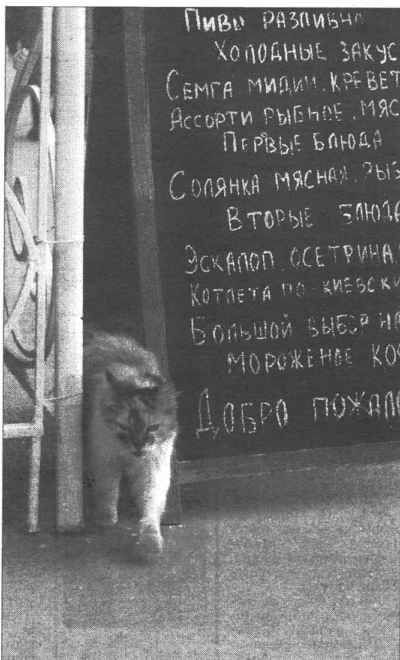 Пиво разливно
Холодные закус
Семга. мидии. кревет
Ассорти рыбное. мяс
Первые блюда
Солянка мясная. рыб
Вторые блюда
Эскалоп. осетрина.
Котлета по-киевски
Большой выбор на
Мороженое ко
Добро пожало